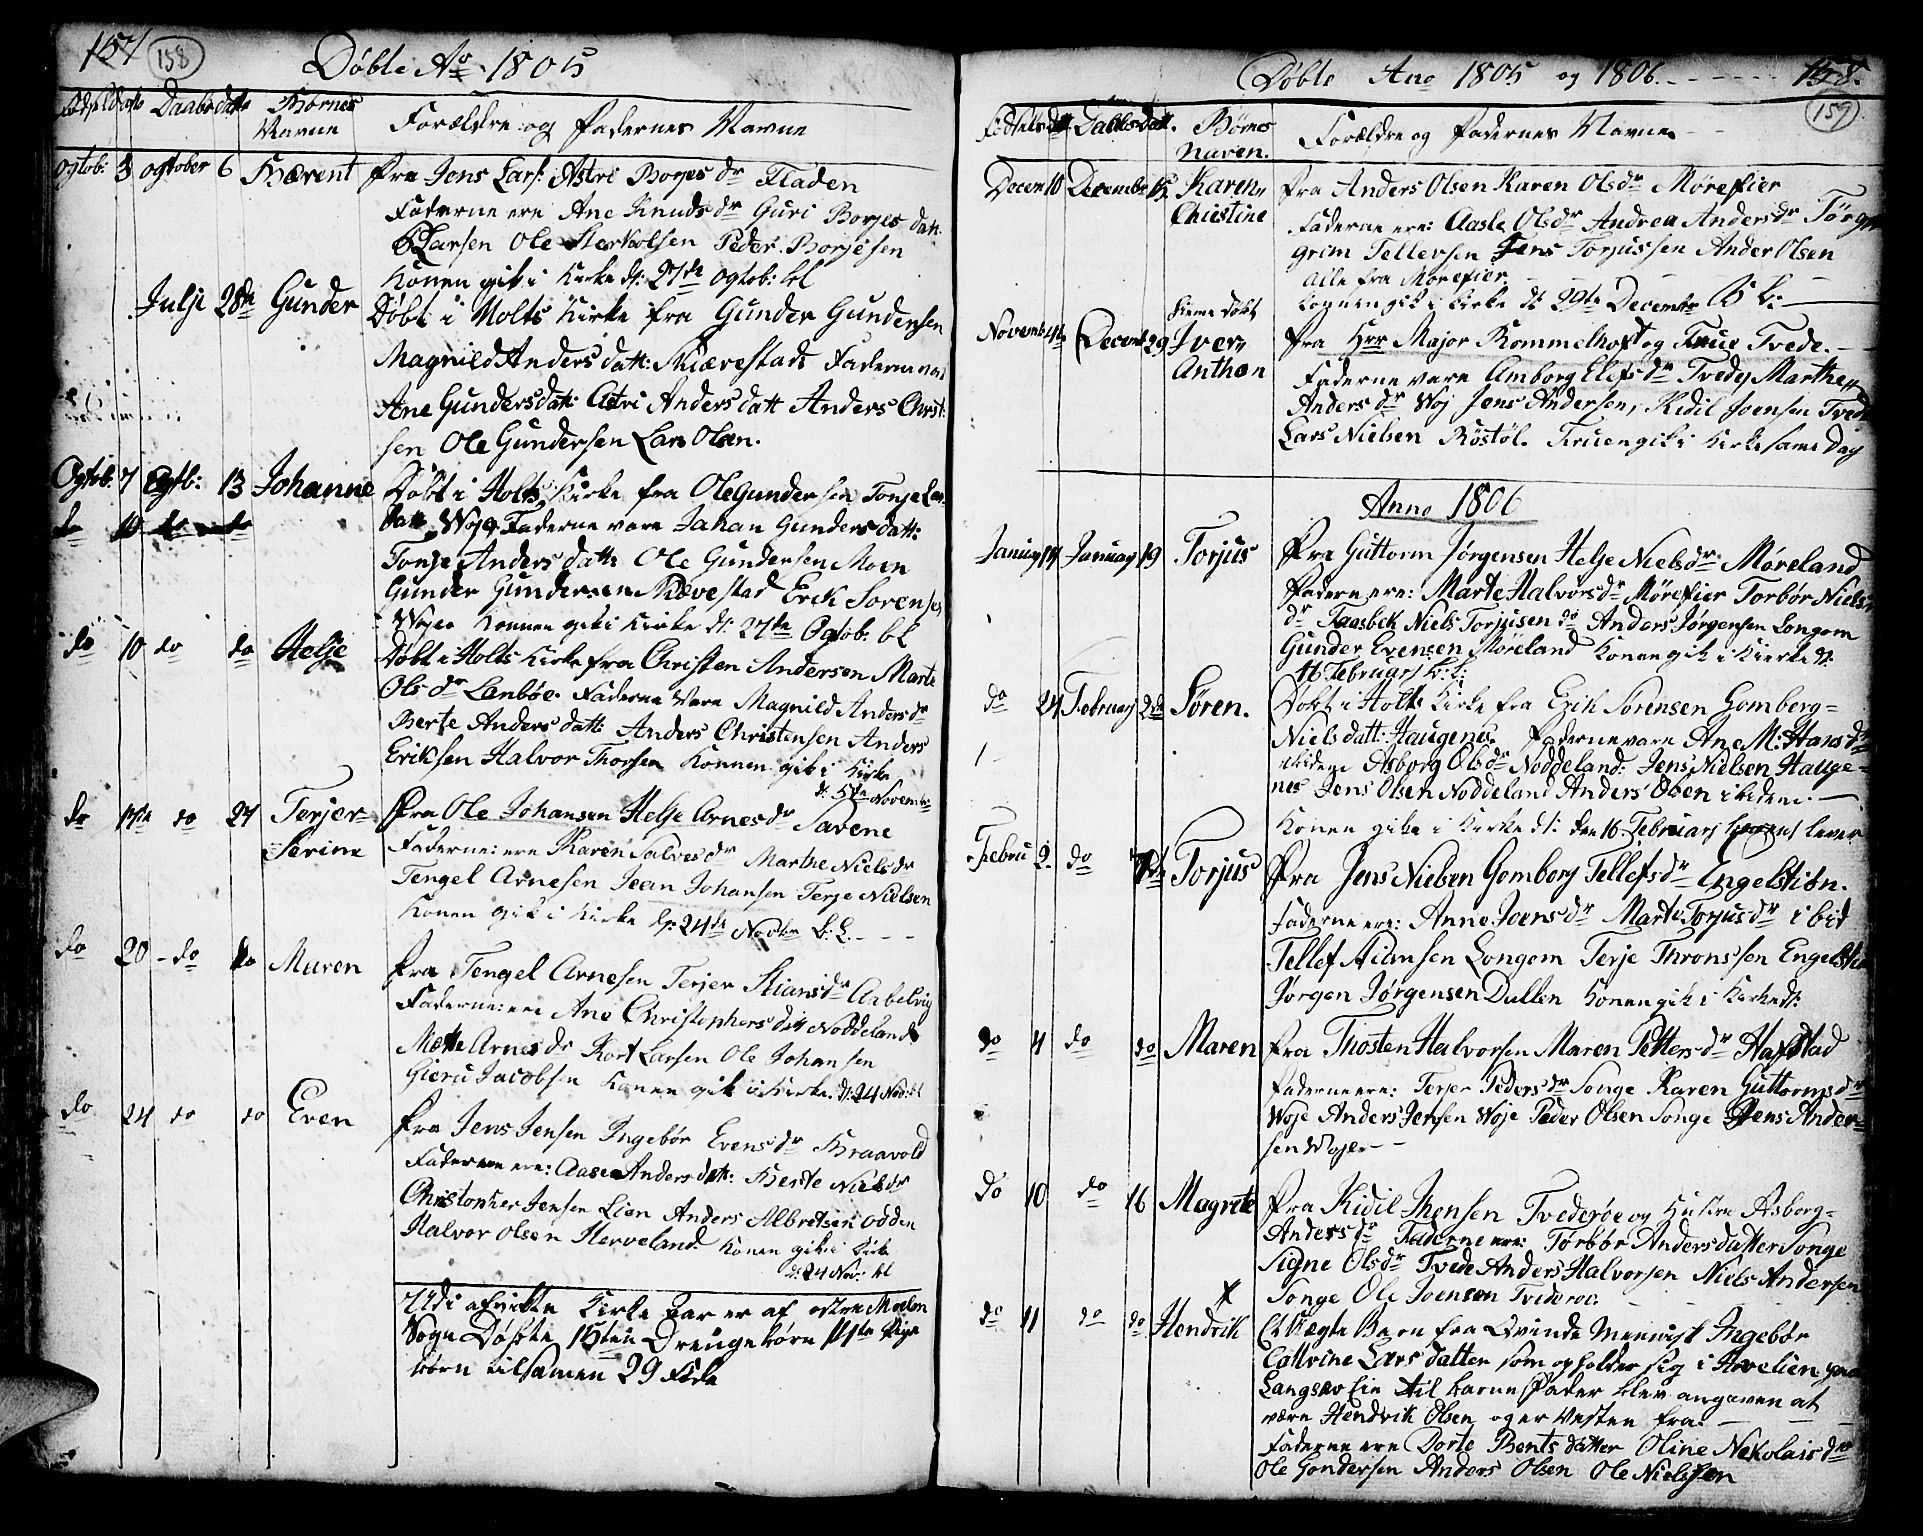 157 158
Døbte Ao 1805
Fødselsdato Daabs dato Børnes Navne Forældre og Fadernes Navne
Ogtob: 3 ogtober 6 Bærent fra Jens Lars: Astri Borjes dr Fladen
Faderne ere Ane Knuds dr Guri Borjes datt
Larsen Ole Sterkolsen Peder Borjesen
Konen gik i Kirke d: 27de Ogtob: bl
Julji 28de Gunder Døbt i Holts Kirke fra Gunder Gundersen
Magnild Anders datt: Kiærestad Faderne var
Ane Gundersdatt: Astri Anders datt Anders Christ:
sen Ole Gundersen Lars Olsen.
Ogtob. 7 Ogtb: 13 Johanne Døbt i Holts Kirke fra Ole Gundersen Tonje Lar
datt Woje Faderne vare Johan Gunders datt:
Tonje Anders datt: Ole Gundersen Moen
Gunder Gundersen Kiævestad Erik Sorensen
Wojen Konnen gik i Kirke d: 27de Ogtob. bl
do 10 do do Helje Døbt i Holts Kirke fra Christen Andersen Marte
Ols dr Lanbøe. Faderne vare Magnild Anders dr
Berte Anders datt: Anders Christensen Anders
Eriksen Halvor Thorsen Konnen gik i Kirke
d: 5te Novembr
do 17de do 27 Terjer fra Ole Johansen Helje Arnes dr Savene
Serine Faderne: ere Karen Salves dr Marthe Niels dr
Tengel Arnesen Jean Johansen Terje Nielsen
Konen gik i Kirke d: 24de Novbr b: l.
do 20 do do Maren fra Tengel Arnesen Terjer Stians dr Aabelvig
Faderne: ere Ane Christophers datt Noddeland
Mette Arnes dr Kort Larsen Ole Johansen
Gieru Jacobsen Konen gik i Kirke d: 24 Nov: bl
do 24 do do Even fra Jens Jensen Ingebør Evens dr Braavold
Faderne ere: Aase Anders datt: Berte Niels dr
Christopher Jensen Lien Anders Albretsen Odden
Halvor Olsen Herveland. Konen gik i Kirke
d: 24 Nov: bl
Udi afvikte Kirke Aar er af østre Moland
Sogn Døbte 15ten Drengebørn 14te Pige
børn tilsamen 29 Kde
Døbte Ano 1805 og 1806. 158.
159
Fødselsdatt Daabsdatt. Børnes Naven. Forældre og Fadernes Navne
Decem 10 December 15 Karen fra Anders Olsen Karen Ols dr Mørefier
Christine Faderne ere: Aasle Ols dr Andrea Anders dr Tørg
grim Tellefsen Jens Torjussen Ander Olsen
alle fra Mørefier
Kognen gik i Kirke d: 29te Decembr B. l:
Novemb 4de Decemb 29 hiemedøbt Iver fra Herr Major Rommelhoft og Frue Tvede.
Anthon Faderne vare Amborg Elefs dr Tvede Marthe
Anders dr Woj Jens Andersen, Kidil Joensen Tvede
Lars Nielsen Røstøl. Fruen gik i Kirke same Dag
Anno 1806
Januy 14 Januay 19 Torjus fra Guttorm Jørgensen Helje Niels dr. Møreland
Faderne ere: Marte Halvors dr Mørefier Torbør Niels
dr Taasbek Niels Torjusen do Anders Jørgensen Longom
Gunder Evensen Møreland Konen gik i Kierke d:
16 Februarj b: l:
do 24 Februay 2de Søren. Døbt i Holts Kirke fra Erik Sorensen Gomborg
Niels datt: Haugenes. Faderne vare Ane M: Hans dr
ibidem Asborg Ols dr Noddeland: Jens Nielsen Hauge-
nes Jens Olsen Noddeland Anders Olsen ibidem.
Konen gik i Kirke d: den 16 Februarj lever
Februr 2. do 9de Torjus fra Jens Nielsen Gomborg Tellefs dr Engelstiøn.
Faderne ere: Anne Joens dr Marte Torjus dr ibid
Tellef Longom Terje Thronssen Engelstiøn
Jørgen Jørgensen Dullen Konen gik i Kirke d:
do 4 do do Maren fra Thosten Halvorsen Maren Petters dr Hafstad
Faderne ere: Terjer Peders dr Songe Karen Guttorms dr
Woje Anders Jensen Woje Peder Olsen Songe Jens Ander-
sen Wojer
do 10 do 16 Magrete fra Kidil Jhensen Tvederøe og Hustru Asborg
Anders dr Faderne ere: Torbør Andersdatter Songe
Signe Ols dr Tvede Anders Halvorsen Niels Andersen
Songe Ole Joensen Tvederøe.
do 11 do do Hendrik Et Uægte Barn fra Qvinde Mennist Ingebør
Cattrine Lars datter som opholder sig i Arvelien paa
Langsøe Eie til barnefader blev angaven at
være Hendrik Olsen og er Vesten fra.
Faderne ere Dorte Bents datter Oline Nekolais dr
Ole Gondersen Anders Olsen Ole Nielssen